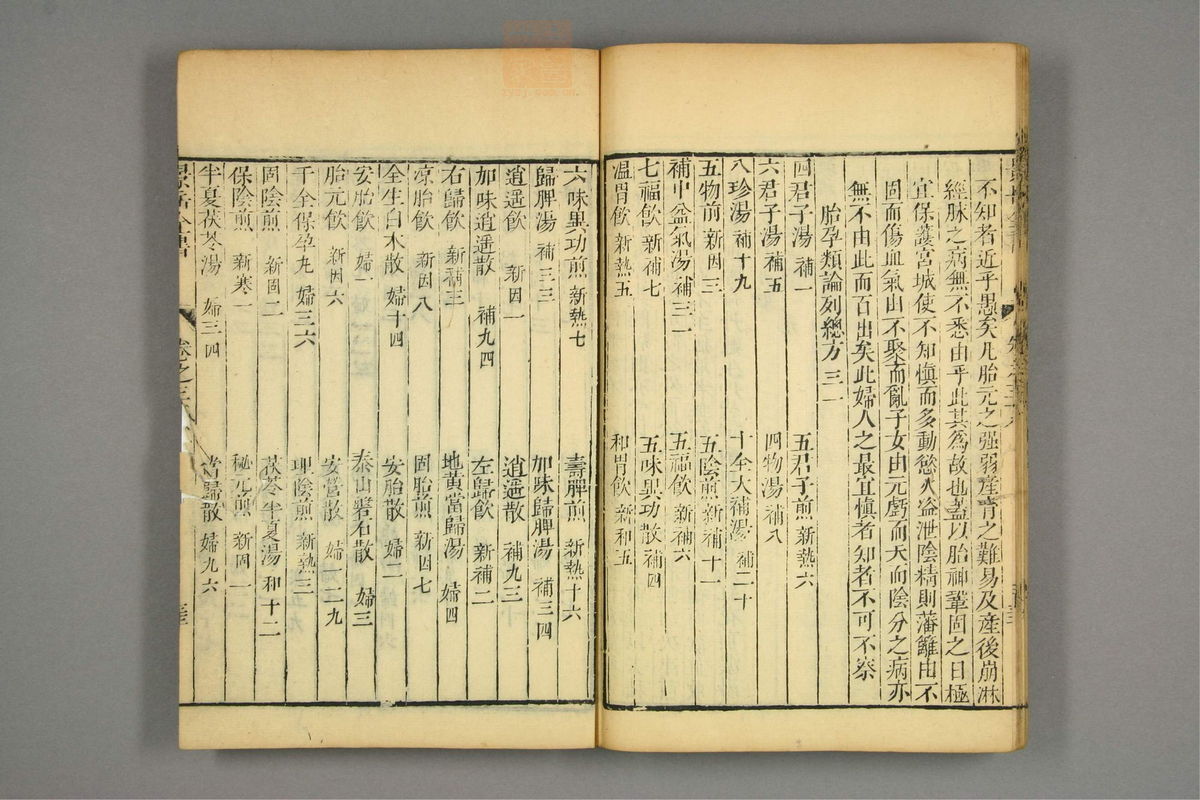 不知者近乎愚矣凡胎元之强弱產育之難易及產後崩淋
經脉之病無不悉由乎此其為故也葢以胎神鞏固之日極
宜保護宮城使不知慎而多動慾火盗泄陰精則藩籬由不
固而傷血氣由不聚而亂子女由元虧而夭而陰分之病亦
無不由此而百出矣此婦人之最宜慎者知者不可不察
胎孕類論列總方 三一
四君子湯 補一 五君子煎 新熱六
六君子湯 補五 四物湯 補八
八珍湯 補十九 十全大補湯 補二十
五物煎 新因三 五陰煎 新補十一
補中益氣湯 補三一 五福飲 新補六
七福飲 新補七 五味異功散 補四
温胃飲 新熱五 和胃飲 新和五
六味異功煎 新熱七 壽脾煎 新熱十六
歸脾湯 補三三 加味歸脾湯 補三四
逍遥飲 新因一 逍遥散 補九三
加味逍遥散 補九四 左歸飲 新補二
右歸飲 新補三 地黃當歸湯 婦四
凉胎飲 新因八 固胎煎 新四七
全生白木散 婦十四 安胎散 婦二
安胎飲 婦一 泰山磐石散 婦三
胎元飲 新因六 安營散 婦二九
千全保孕丸 婦三六 理陰煎 新熱三
固陰煎 新固二 茯苓半夏湯 和十二
保陰煎 新寒一 秘元煎 新固一
半夏茯苓湯 婦三四 當歸散 婦九六
景岳全書 卷之三八 三三